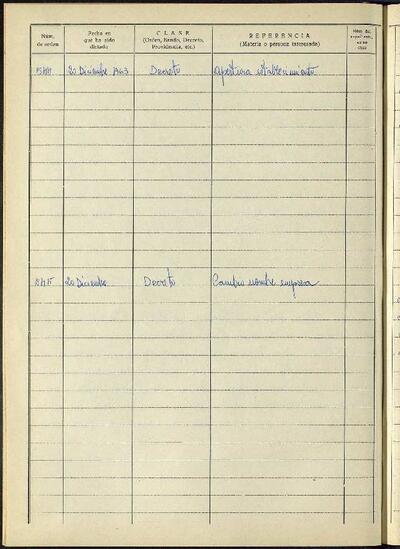 Núm. de orden
Fecha en que ha sido dictado
CLASE (Orden, Bando, Decreto, Providencia, etc.)
REFERENCIA (Materia o persona interesada)
20 Diciembre 1963 Decreto Apertura establecimiento
20 Diciembre Decreto Cambio nombre empresa